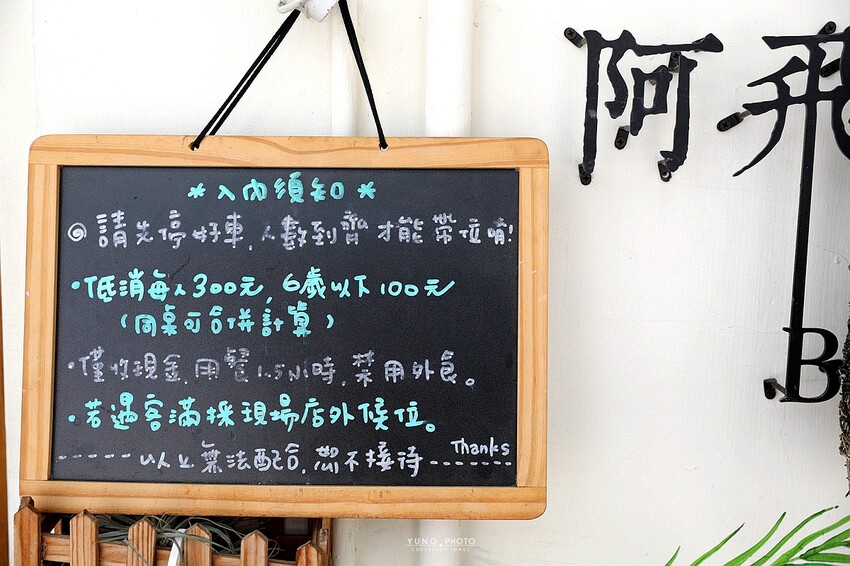 *入內須知*
◎請先停好車,人數到齊才能帶位唷!
•低消每人300元,6歲以下100元
(同桌可合併計算)
•僅收現金,用餐1.5小時,禁用外食。
•若遇客滿採現場店外候位。
-----以上無法配合,恕不接待-----
Thanks
阿飛
B
YUNO PHOTO
COPYRIGHT IMAGE